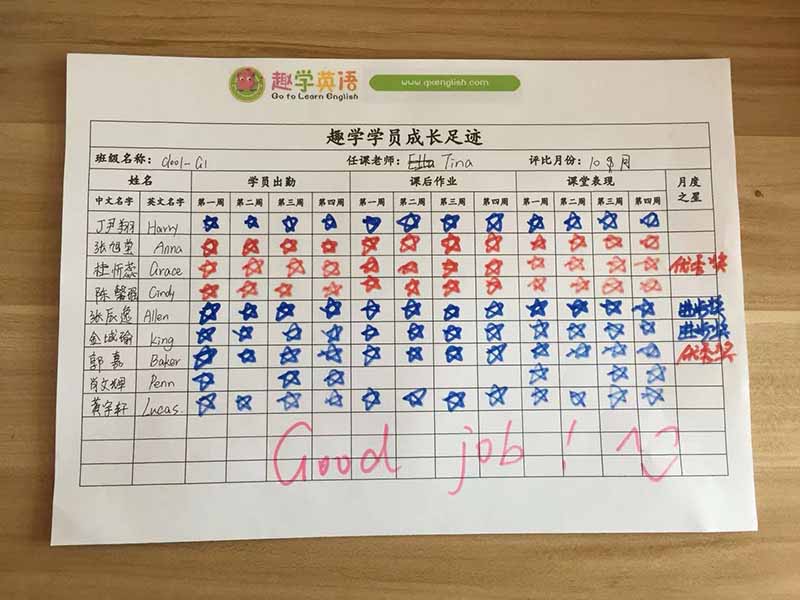 趣学英语
Go to Learn English
www.qxenglish.com
趣学学员成长足迹
班级名称： 任课老师： Tina 评比月份：10月
姓名 学员出勤 课后作业 课堂表现 月度之星
中文名字 英文名字 第一周 第二周 第三周 第四周 第一周 第二周 第三周 第四周 第一周 第二周 第三周 第四周
丁尹翔 Harry
张旭莹 Anna
杜忻蕊 Grace 优秀奖
陈馨 Cindy
张辰逸 Allen 进步奖
金城瑜 King 进步奖
郭嘉 Baker 优秀奖
肖文耀 Penn
黄宇轩 Lucas
Good job!